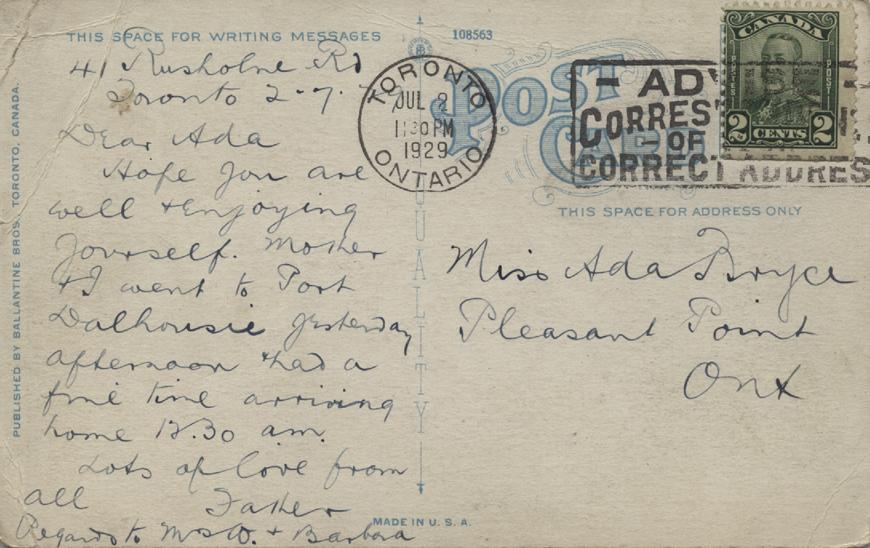 THIS SPACE FOR WRITING MESSAGES
108563
41 Rusholme Rd
Toronto 2-7-
Dear Ada
Hope you are
well & enjoying
yourself. Mother
& I went to Port
Dalhousie yesterday
afternoon & had a
fine time arriving
home 12.30 a.m.
Lots of love from
all Father
Regards to Mrs W. & Barbara
PUBLISHED BY BALLANTINE BROS. TORONTO, CANADA.
QUALITY
MADE IN U.S.A.
POST
CARD
TORONTO
JUL 2
11 30 PM
1929
ONTARIO
CORRES
- OF -
CORRECT ADDRES
CANADA
POSTES
POST
2 CENTS 2
THIS SPACE FOR ADDRESS ONLY
Miss Ada Bryce
Pleasant Point
Ont